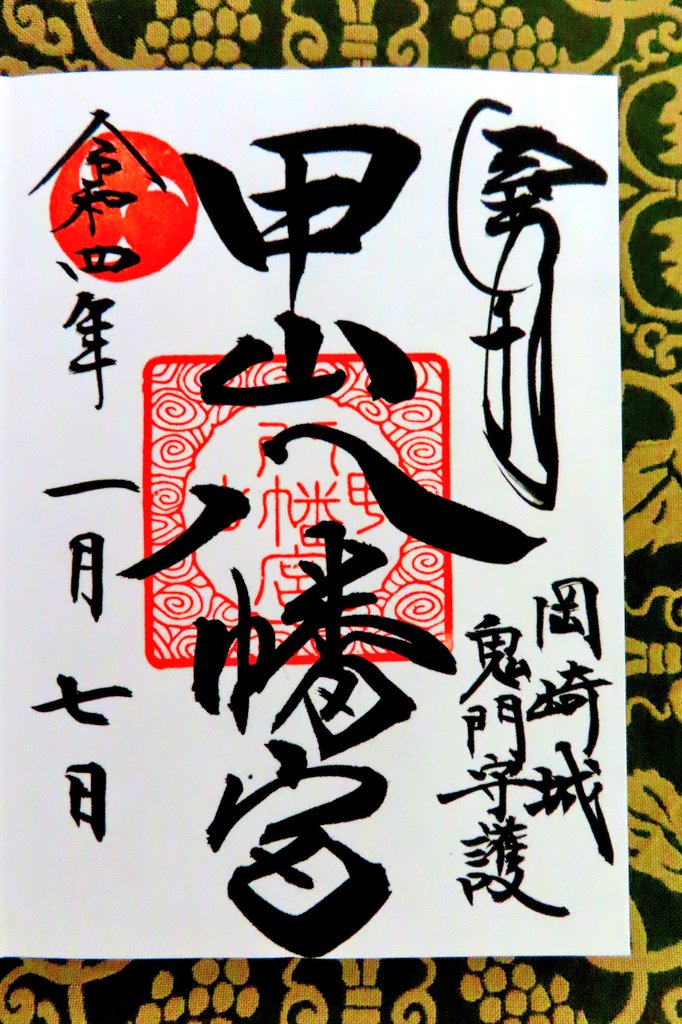 岡崎城
鬼門守護
甲山八幡宮
八幡宮
令和四年 一月 七日